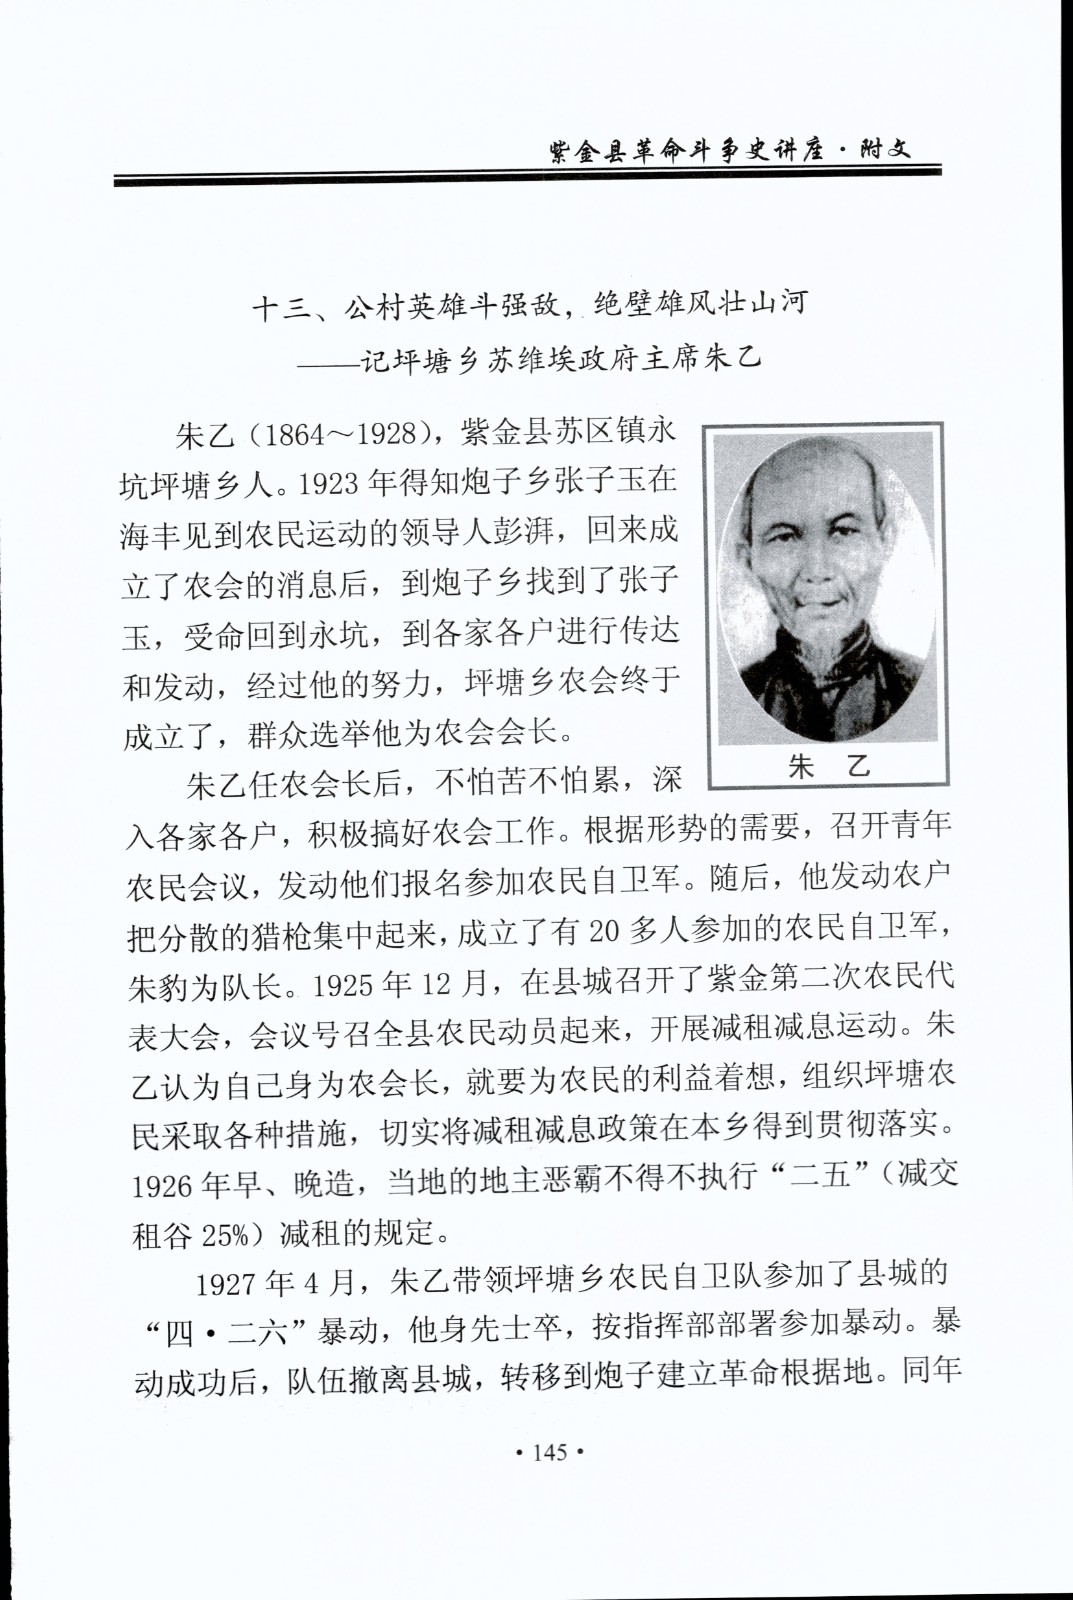 紫金县革命斗争史讲座·附文
十三、公村英雄斗强敌，绝壁雄风壮山河
——记坪塘乡苏维埃政府主席朱乙
朱乙（1864～1928），紫金县苏区镇永
坑坪塘乡人。1923 年得知炮子乡张子玉在
海丰见到农民运动的领导人彭湃，回来成
立了农会的消息后，到炮子乡找到了张子
玉，受命回到永坑，到各家各户进行传达
和发动，经过他的努力，坪塘乡农会终于
成立了，群众选举他为农会会长。
朱 乙
朱乙任农会长后，不怕苦不怕累，深
入各家各户，积极搞好农会工作。根据形势的需要，召开青年
农民会议，发动他们报名参加农民自卫军。随后，他发动农户
把分散的猎枪集中起来，成立了有 20 多人参加的农民自卫军，
朱豹为队长。1925 年 12 月，在县城召开了紫金第二次农民代
表大会，会议号召全县农民动员起来，开展减租减息运动。朱
乙认为自己身为农会长，就要为农民的利益着想，组织坪塘农
民采取各种措施，切实将减租减息政策在本乡得到贯彻落实。
1926 年早、晚造，当地的地主恶霸不得不执行“二五”（减交
租谷 25%）减租的规定。
1927 年 4 月，朱乙带领坪塘乡农民自卫队参加了县城的
“四·二六”暴动，他身先士卒，按指挥部部署参加暴动。暴
动成功后，队伍撤离县城，转移到炮子建立革命根据地。同年
·145·